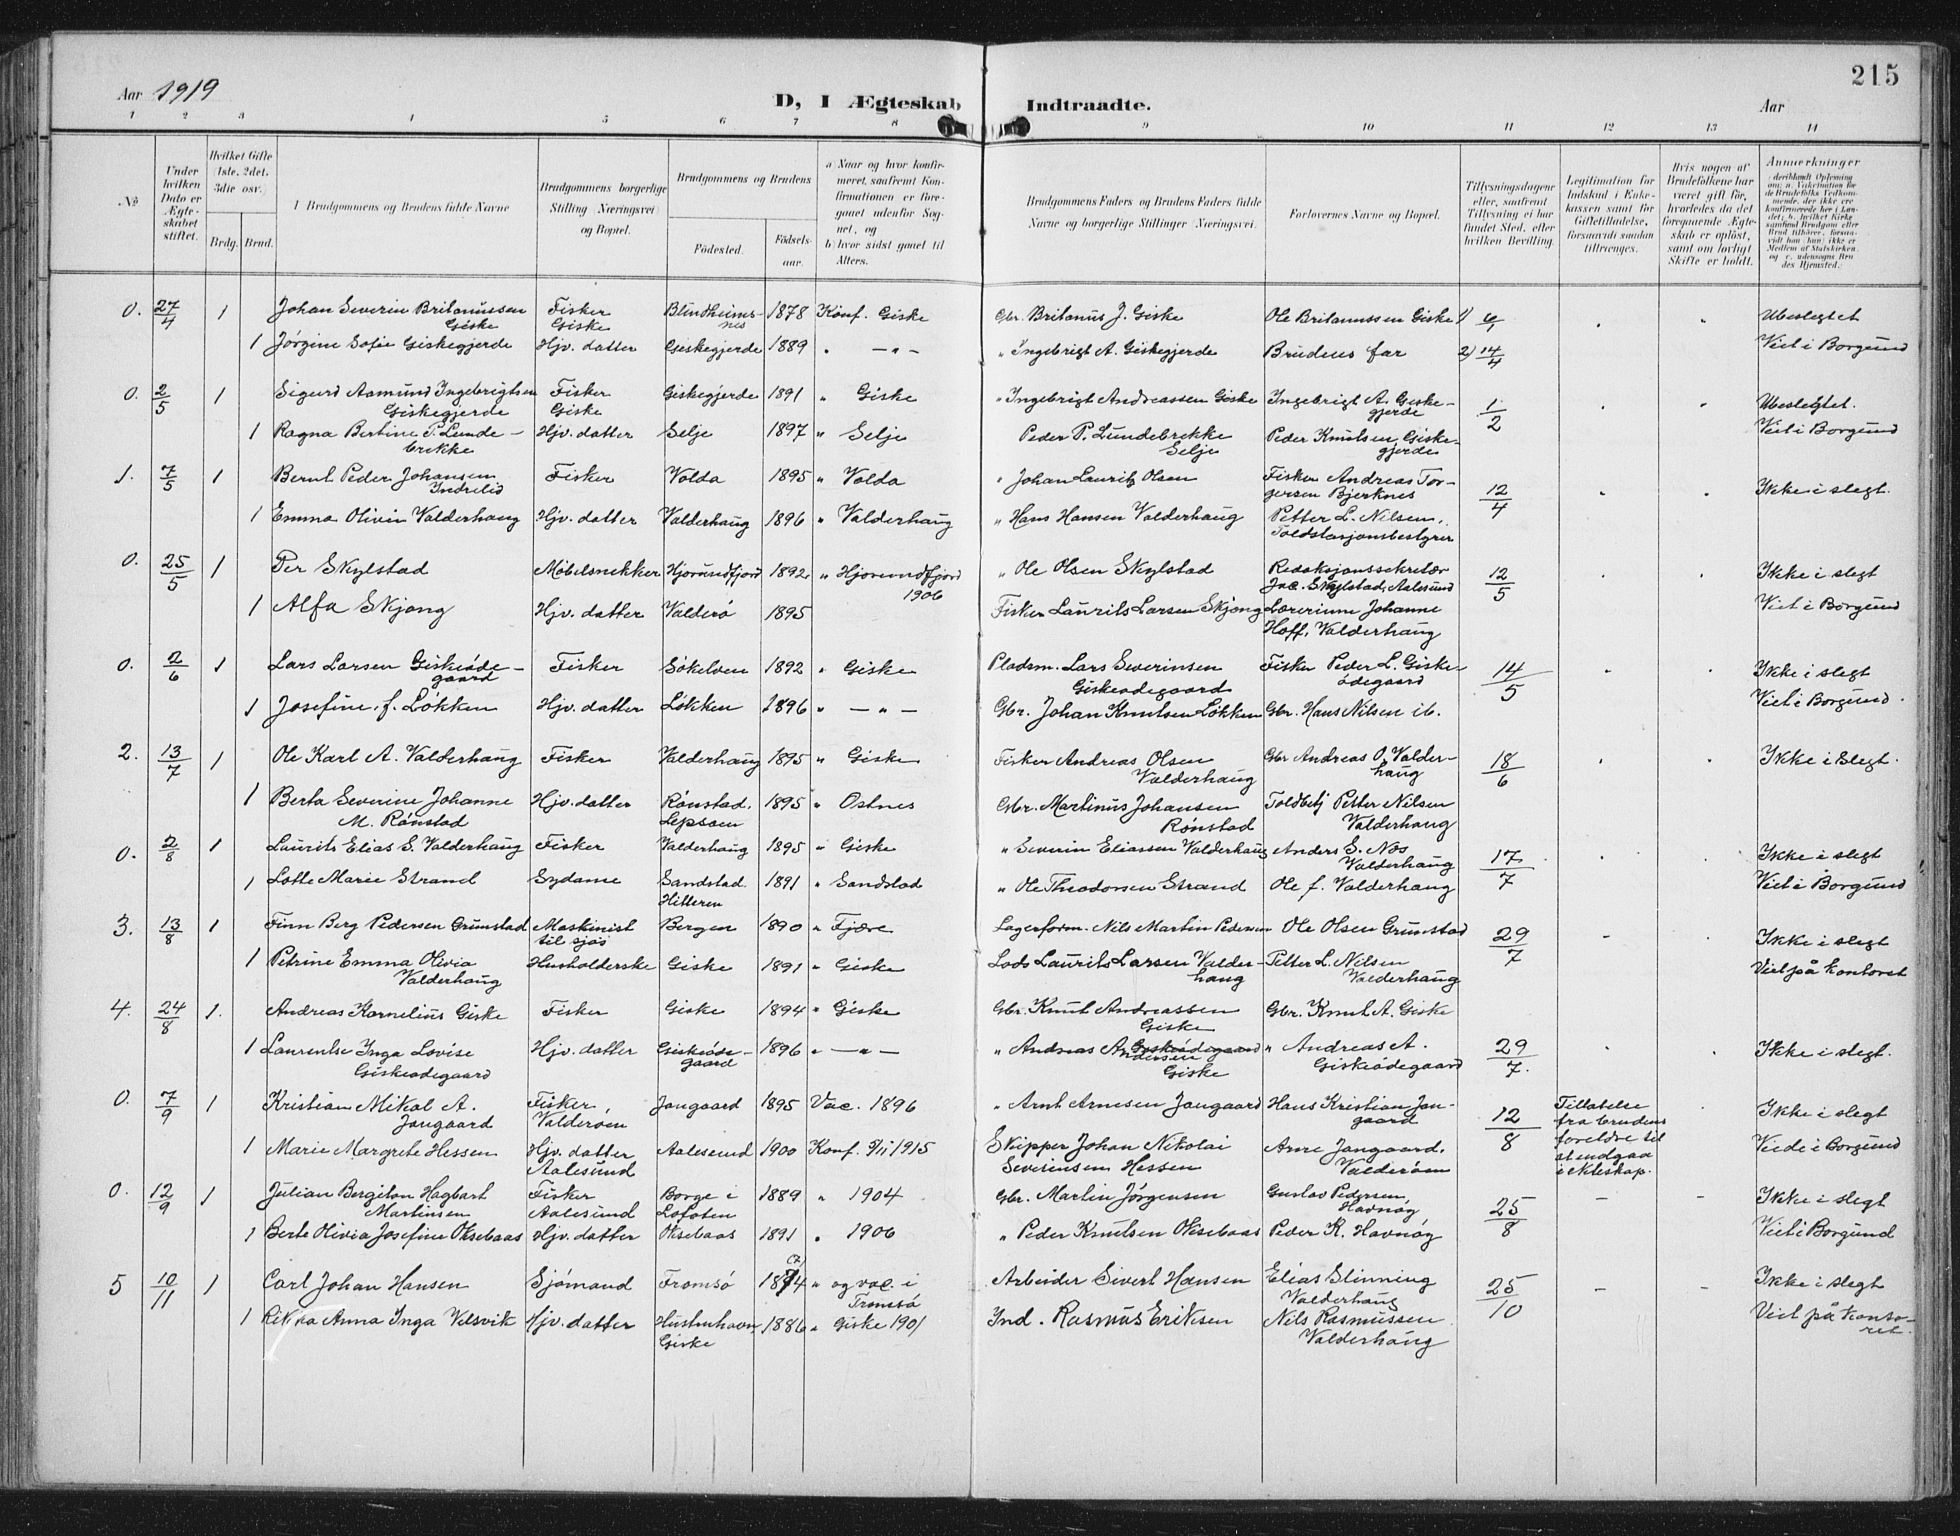 215
Aar 1919
D, I Ægteskab Indtraadte.
Aar
1 2 3 4 5 6 7 8 9 10 11 12 13 14
No
Under hvilken Dato er Ægteskabet stiftet.
Hvilket Gifte (1ste, 2det, 3die osv.)
Brdg. Brud.
Brudgommens og Brudens fulde Navne
Brudgommens borgerlige Stilling (Næringsvei) og Bopæl.
Brudgommens og Brudens
Födested.
Födselsaar.
a) Naar og hvor konfirmeret, saafremt Konfirmationen er foregaaet udenfor Sognet, og
b) hvor sidst gaaet til Alters.
Brudgommens Faders og Brudens Faders fulde Navne og borgerlige Stillinger (Næringsvei).
Forlovernes Navne og Bopæl.
Tillysningsdagene eller, saafremt Tillysning ei har fundet Sted, efter hvilken Bevilling.
Legitimation for Indskud i Enkekassen samt for Giftetilladelse, forsaavidt saadan tiltrænges.
Hvis nogen af Brudefolkene har været gift før, hvorledes da det foregaaende Ægteskab er opløst, samt om lovligt Skifte er holdt.
Anmerkninger
(deriblandt Oplysning om: a. Vakcination for de Brudefolks Vedkommende, der ikke ere konfirmerede her i Landet; b. hvilket Kirkesamfund Brudgom eller Brud tilhører, forsaavidt han (hun) ikke er Medlem af Statskirken, og c. udensogns Brudes Hjemsted.)
0. 27/4 1 Johan Severin Britanussen Giske Fisker Giske Blindheimsnes 1878 Konf. Giske Gbr. Britanus J. Giske Ole Britanussen Giske 1) 6/4 Ubeslegtet
1 Jørgine Sofie Giskegjerde Hjv. datter Giskegjerde 1889 " — " — " Ingebrigt A. Giskegjerde Brudens far 2) 14/4 Viet i Borgund
0. 2/5 1 Sigurd Aamund Ingebrigtsen Giskegjerde Fisker Giske Giskegjerde 1891 " Giske " Ingebrigt Andreassen Giske Ingebrigt A. Giskegjerde 1/2 Ubeslegtet.
1 Ragna Bertine P. Lundebrekke Hjv. datter Selje 1897 " Selje Peder P. Lundebrekke Selje Peder Knutsen, Giskegjerde Viet i Borgund
1. 7/5 1 Bernt Peder Johansen Indrelid Fisker Volda 1895 " Volda " Johan Lauritz Olsen Fisker Andreas Torgersen Bjerknes 12/4 Ikke i slegt.
1 Emma Olivin Valderhaug Hjv. datter Valderhaug 1896 " Valderhaug " Hans Hansen Valderhaug Petter L. Nilsen, Toldstasjonsbestyrer
0. 25/5 1 Per Skylstad Møbelsnekker Hjorundfjord 1892 " Hjorundfjord 1906 " Ole Olsen Skylstad Redaksjonssekretær Jac. Skylstad, Aalesund 12/5 Ikke i slegt
1 Alfa Skjong Hjv. datter Valderö 1895 Fisker Laurits Larsen Skjong Lærerinne Johanne Hoff, Valderhaug Viet i Borgund
0. 2/6 1 Lars Larsen Giskeødegaard Fisker Søkelven 1892 " Giske Pladsm. Lars Severinsen Giskeødegaard Fisker Peder L. Giskeødegaard 14/5 Ikke i slegt
1 Josefine. f. Løkken Hjv. datter Løkken 1896 " — " — Gbr. Johan Knutsen Løkken Gbr. Hans Nilsen ib. Viet i Borgund.
2. 13/7 1 Ole Karl A. Valderhaug Fisker Valderhaug 1895 " Giske Fisker Andreas Olsen Valderhaug Gbr Andreas O. Valderhaug 18/6 Ikke i Slegt.
1 Berta Severine Johanne M. Rønstad Hjv. datter Rønstad, Lepsøen 1895 " Østnes Gbr. Martinus Johansen Rønstad Toldbetj Petter Nilsen Valderhaug
0. 2/8 1 Laurits Elias S. Valderhaug Fisker Valderhaug 1895 " Giske " Severin Eliassen Valderhaug Anders S. Nos Valderhaug 17/7 Ikke i slegt
1 Lotte Marie Strand Sydame Sandstad Hitteren 1891 " Sandstad " Ole Theodorsen Strand Ole f. Valderhaug Viet i Borgund
3. 13/8 1 Finn Berg Pedersen Grimstad Maskinist til sjøs Bergen 1890 " Fjære Lagerform. Nils Martin Pedersen Ole Olsen Grimstad 29/7 - Ikke i slegt
1 Petrine Emma Olivia Valderhaug Husholderske Giske 1891 " Giske Lods Laurits Larsen Valderhaug Petter L. Nilsen Valderhaug Viet på kontoret
4. 24/8 1. Andreas Kornelius Giske Fisker Giske 1894 " Giske Gbr. Knut Andreassen Giske Gbr. Knut A. Giske
1 Laurentse Inga Lovise Giskeødegaard Hjv. datter Giskeødegaard 1896 " — " — " Andreas Andersen Giskeødegaard Giske " Andreas A. Giskeødegaard 29/7. Ikke i slegt.
0. 7/9 1 Kristian Mikal A. Jangaard Fisker, Valderøen Jangaard 1895 Vac. 1896 " Arnt Arnesen Jangaard Hans Kristian Jangaard 12/8 Tillatelse fra brudens foreldre til at indgaa i ekteskap. Ikke i slegt
1 Marie Margrete Hessen Hjv. datter Aalesund Aalesund 1900 Konf. 1915 Skipper Johan Nikolai Severinsen Hessen Arne Jangaard, Valderøen Viede i Borgund
0. 12/9 1 Julian Bergiton Hagbart Martinsen Fisker Aalesund Borge i Lofoten 1889 " 1904 Gbr. Martin Jørgensen Gustav Pedersen, Havnøg 25/8 - - Ikke i slegt
1 Berte Olivia Josefine Oksebaas Hjv. datter Oksebaas 1891 " 1906 " Peder Knutsen Oksebaas Peder K. Havnøg Viet i Borgund
5 10/11 1 Carl Johan Hansen Sjømand Tromsø 1874 " og vac. i Tromsø Arbeider Sivert Hansen Elias Slinning Valderhaug 25/10 - - Ikke i slegt
1 Anna Inga Velsvik Hjv. datter Giske 1886 " Giske 1901 Ind. Rasmus Eriksen Nils Rasmussen Valderhaug Viet på kontoret.